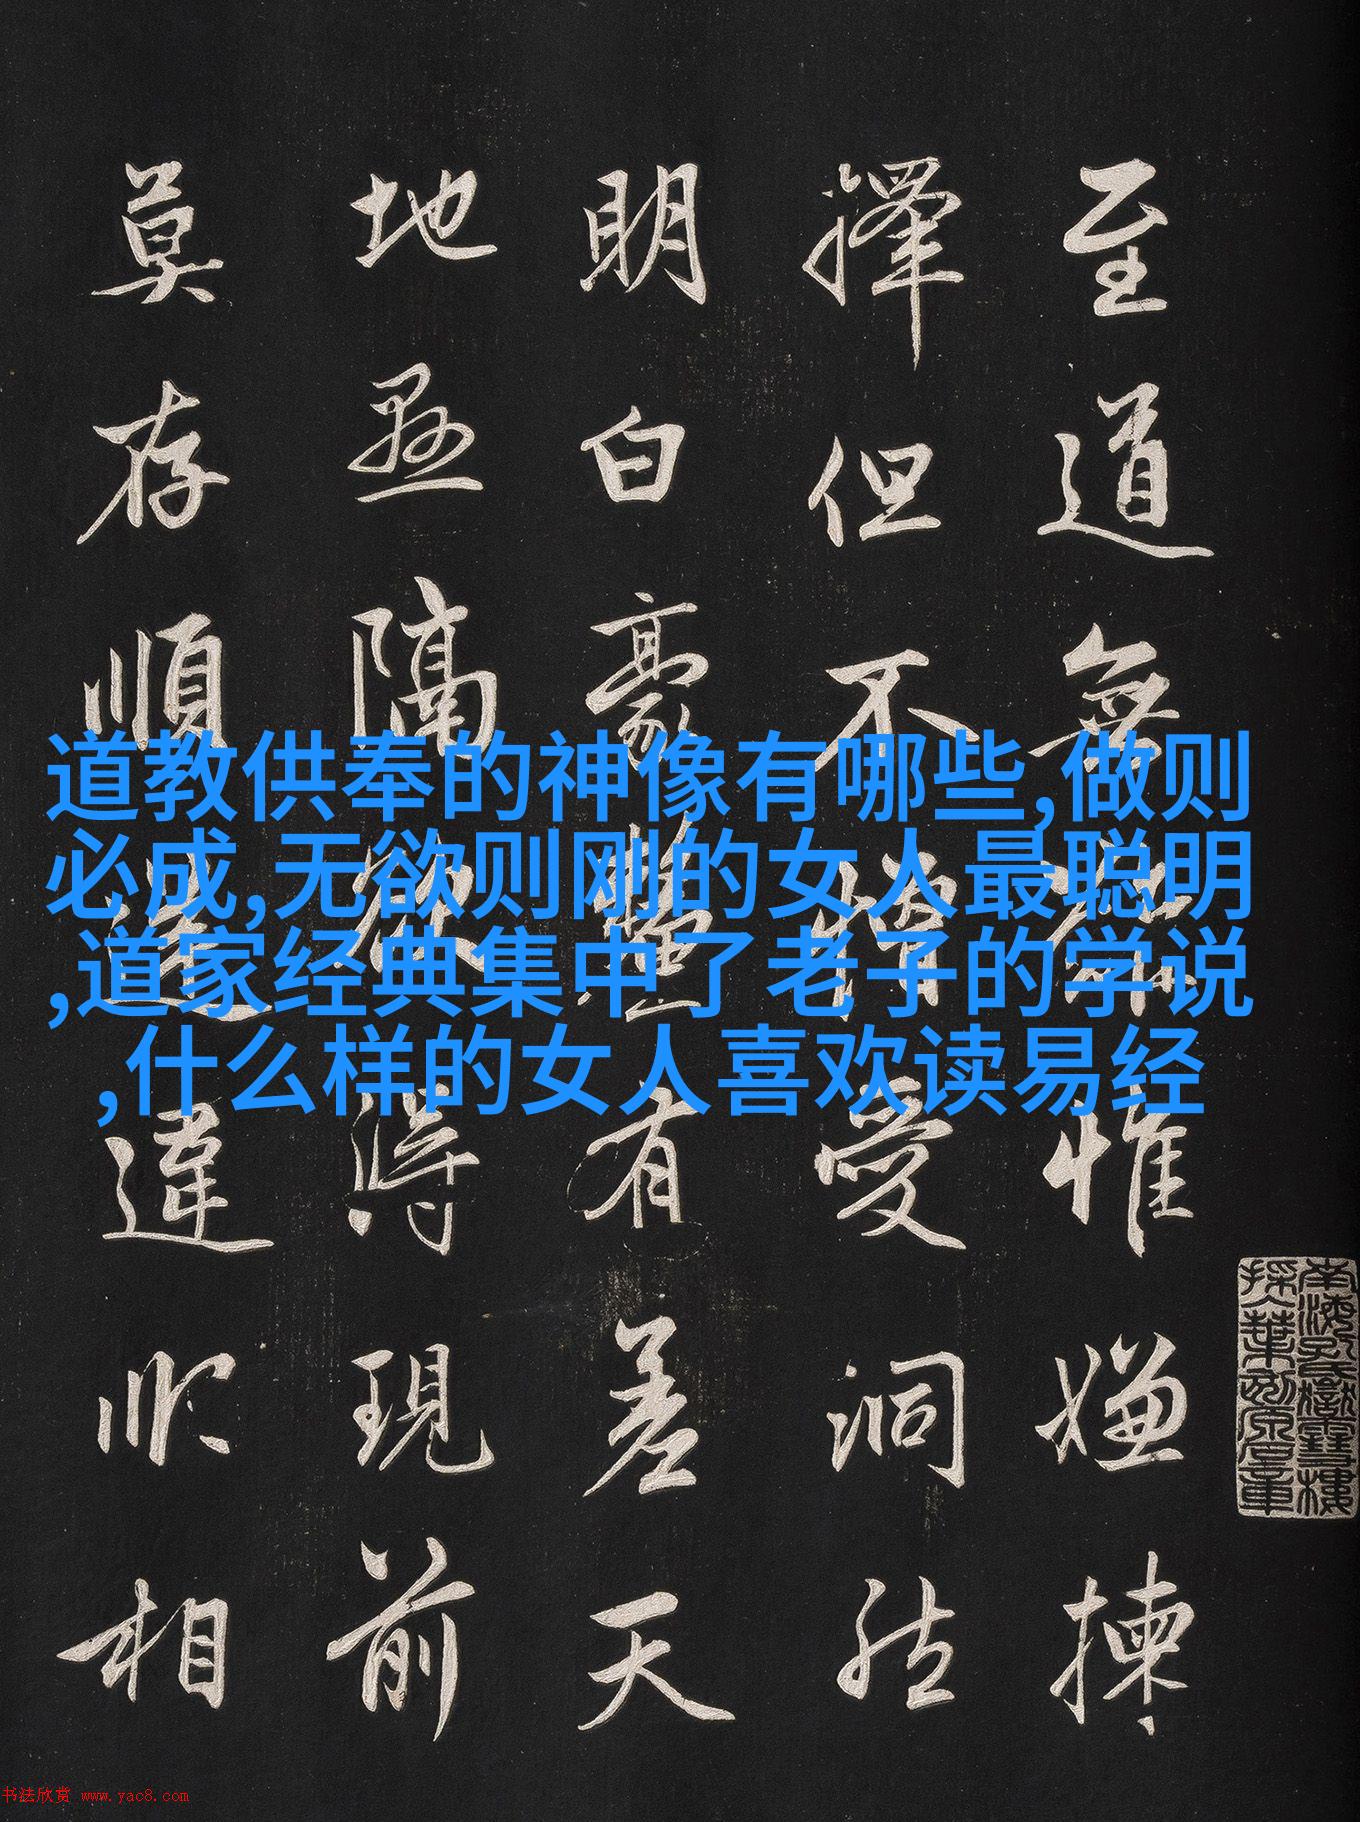 至道無難惟嫌揀
擇但不憎愛洞然
明白豪釐有差天
地懸隔欲得現前
莫存順逆違順相
道教供奉的神像有哪些,做则
必成,无欲则刚的女人最聪明
,道家经典集中了老子的学说
,什么样的女人喜欢读易经
南海孔氏嶽雪樓
书法欣赏 www.yac8.com